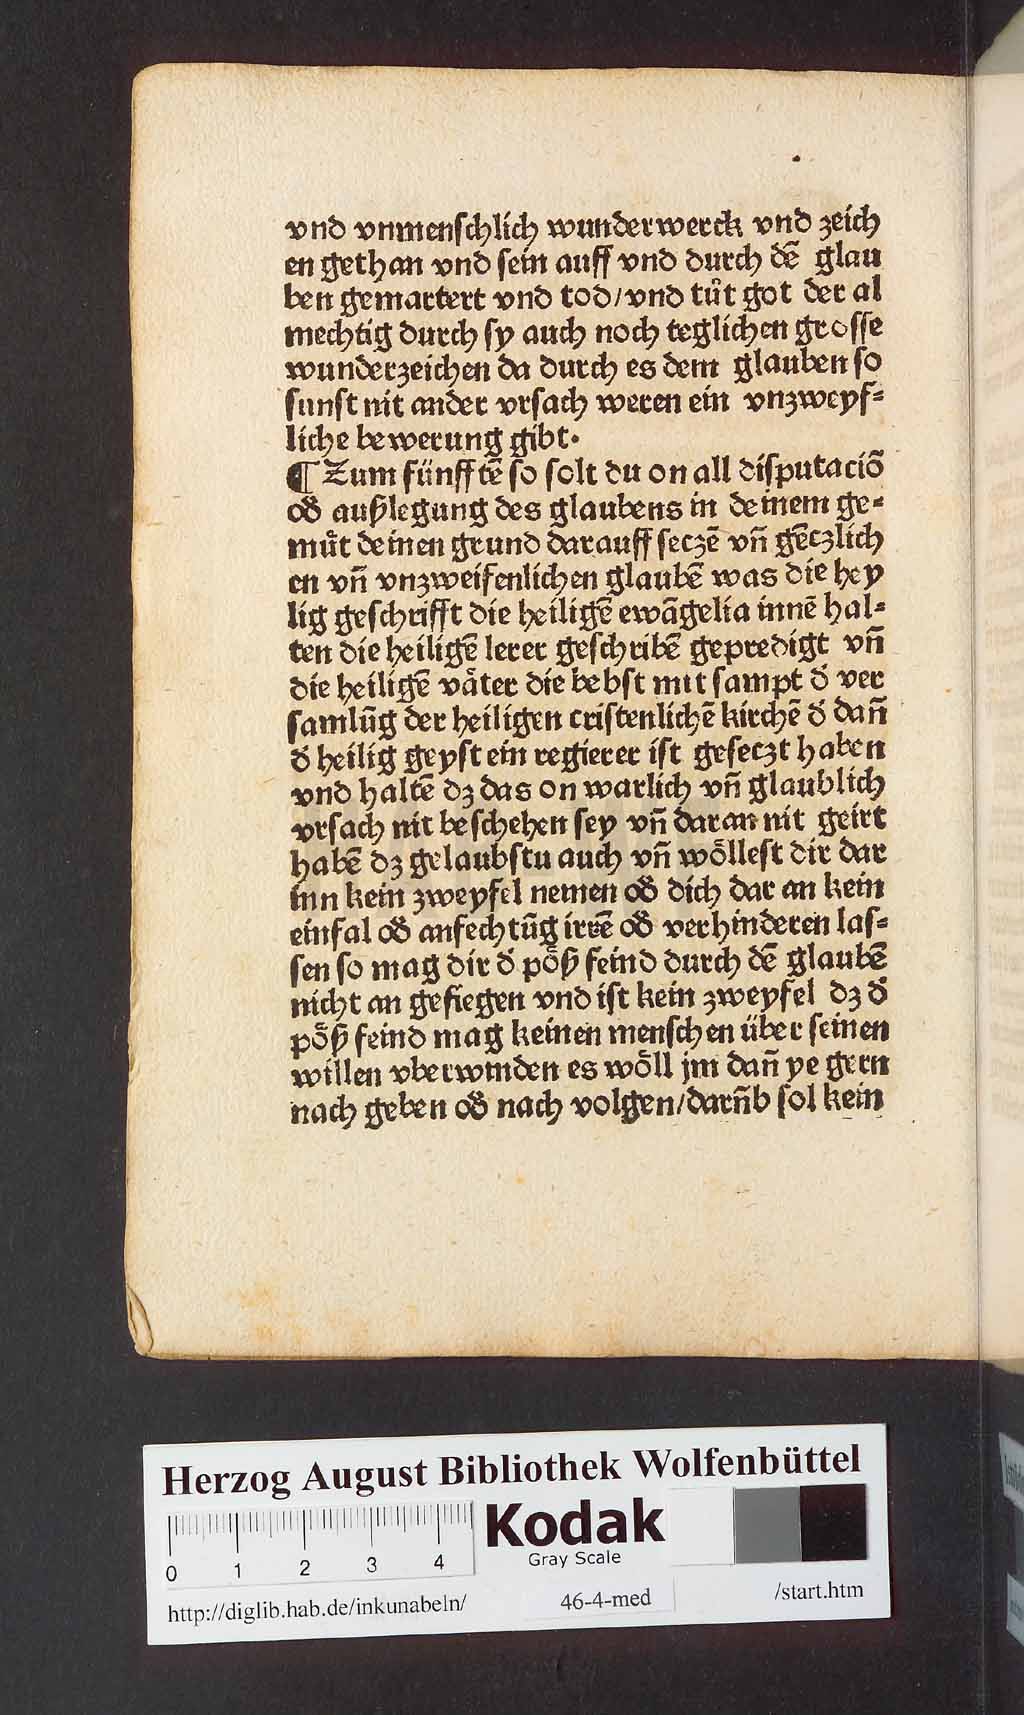 vnd vnmenschlich wunderwerck vnd zeich
en gethan vnd sein auff vnd durch dē glau
ben gemartert vnd tod/vnd tuͤt got der al
mechtig durch sy auch noch teglichen grosse
wunderzeichen da durch es dem glauben so
sunst nit ander vrsach weren ein vnzweyf⸗
liche bewerung gibt.
¶ Zum fünfftē so solt du on all disputaciō
od̕ außlegung des glaubens in deinem ge⸗
muͤt deinen grund darauff seczē vñ gēczlich
en vñ vnzweifenlichen glaubē was die hey
lig geschrifft die heiligē ewāgelia innē hal⸗
ten die heiligē lerer geschribē gepredigt vñ
die heiligē vaͤter die bebst mit sampt d̕ ver
samlūg der heiligen cristenlichē kirchē d̕ dañ
d̕ heilig geyst ein regierer ist geseczt haben
vnd haltē dz das on warlich vñ glaublich
vrsach nit beschehen sey vñ daran nit geirt
habē dz gelaubstu auch vñ woͤllest dir dar
inn kein zweyfel nemen od̕ dich dar an kein
einfal od̕ anfechtūg irrē od̕ verhinderen las⸗
sen so mag dir d̕ poͤß feind durch dē glaubē
nicht an gesiegen vnd ist kein zweyfel dz d̕
poͤß feind mag keinen menschen über seinen
willen vberwinden es woͤll jm dañ ye gern
nach geben od̕ nach volgen/darñb sol kein
Herzog August Bibliothek Wolfenbüttel
0 1 2 3 4
Kodak
Gray Scale
http://diglib.hab.de/inkunabeln/ 46-4-med /start.htm